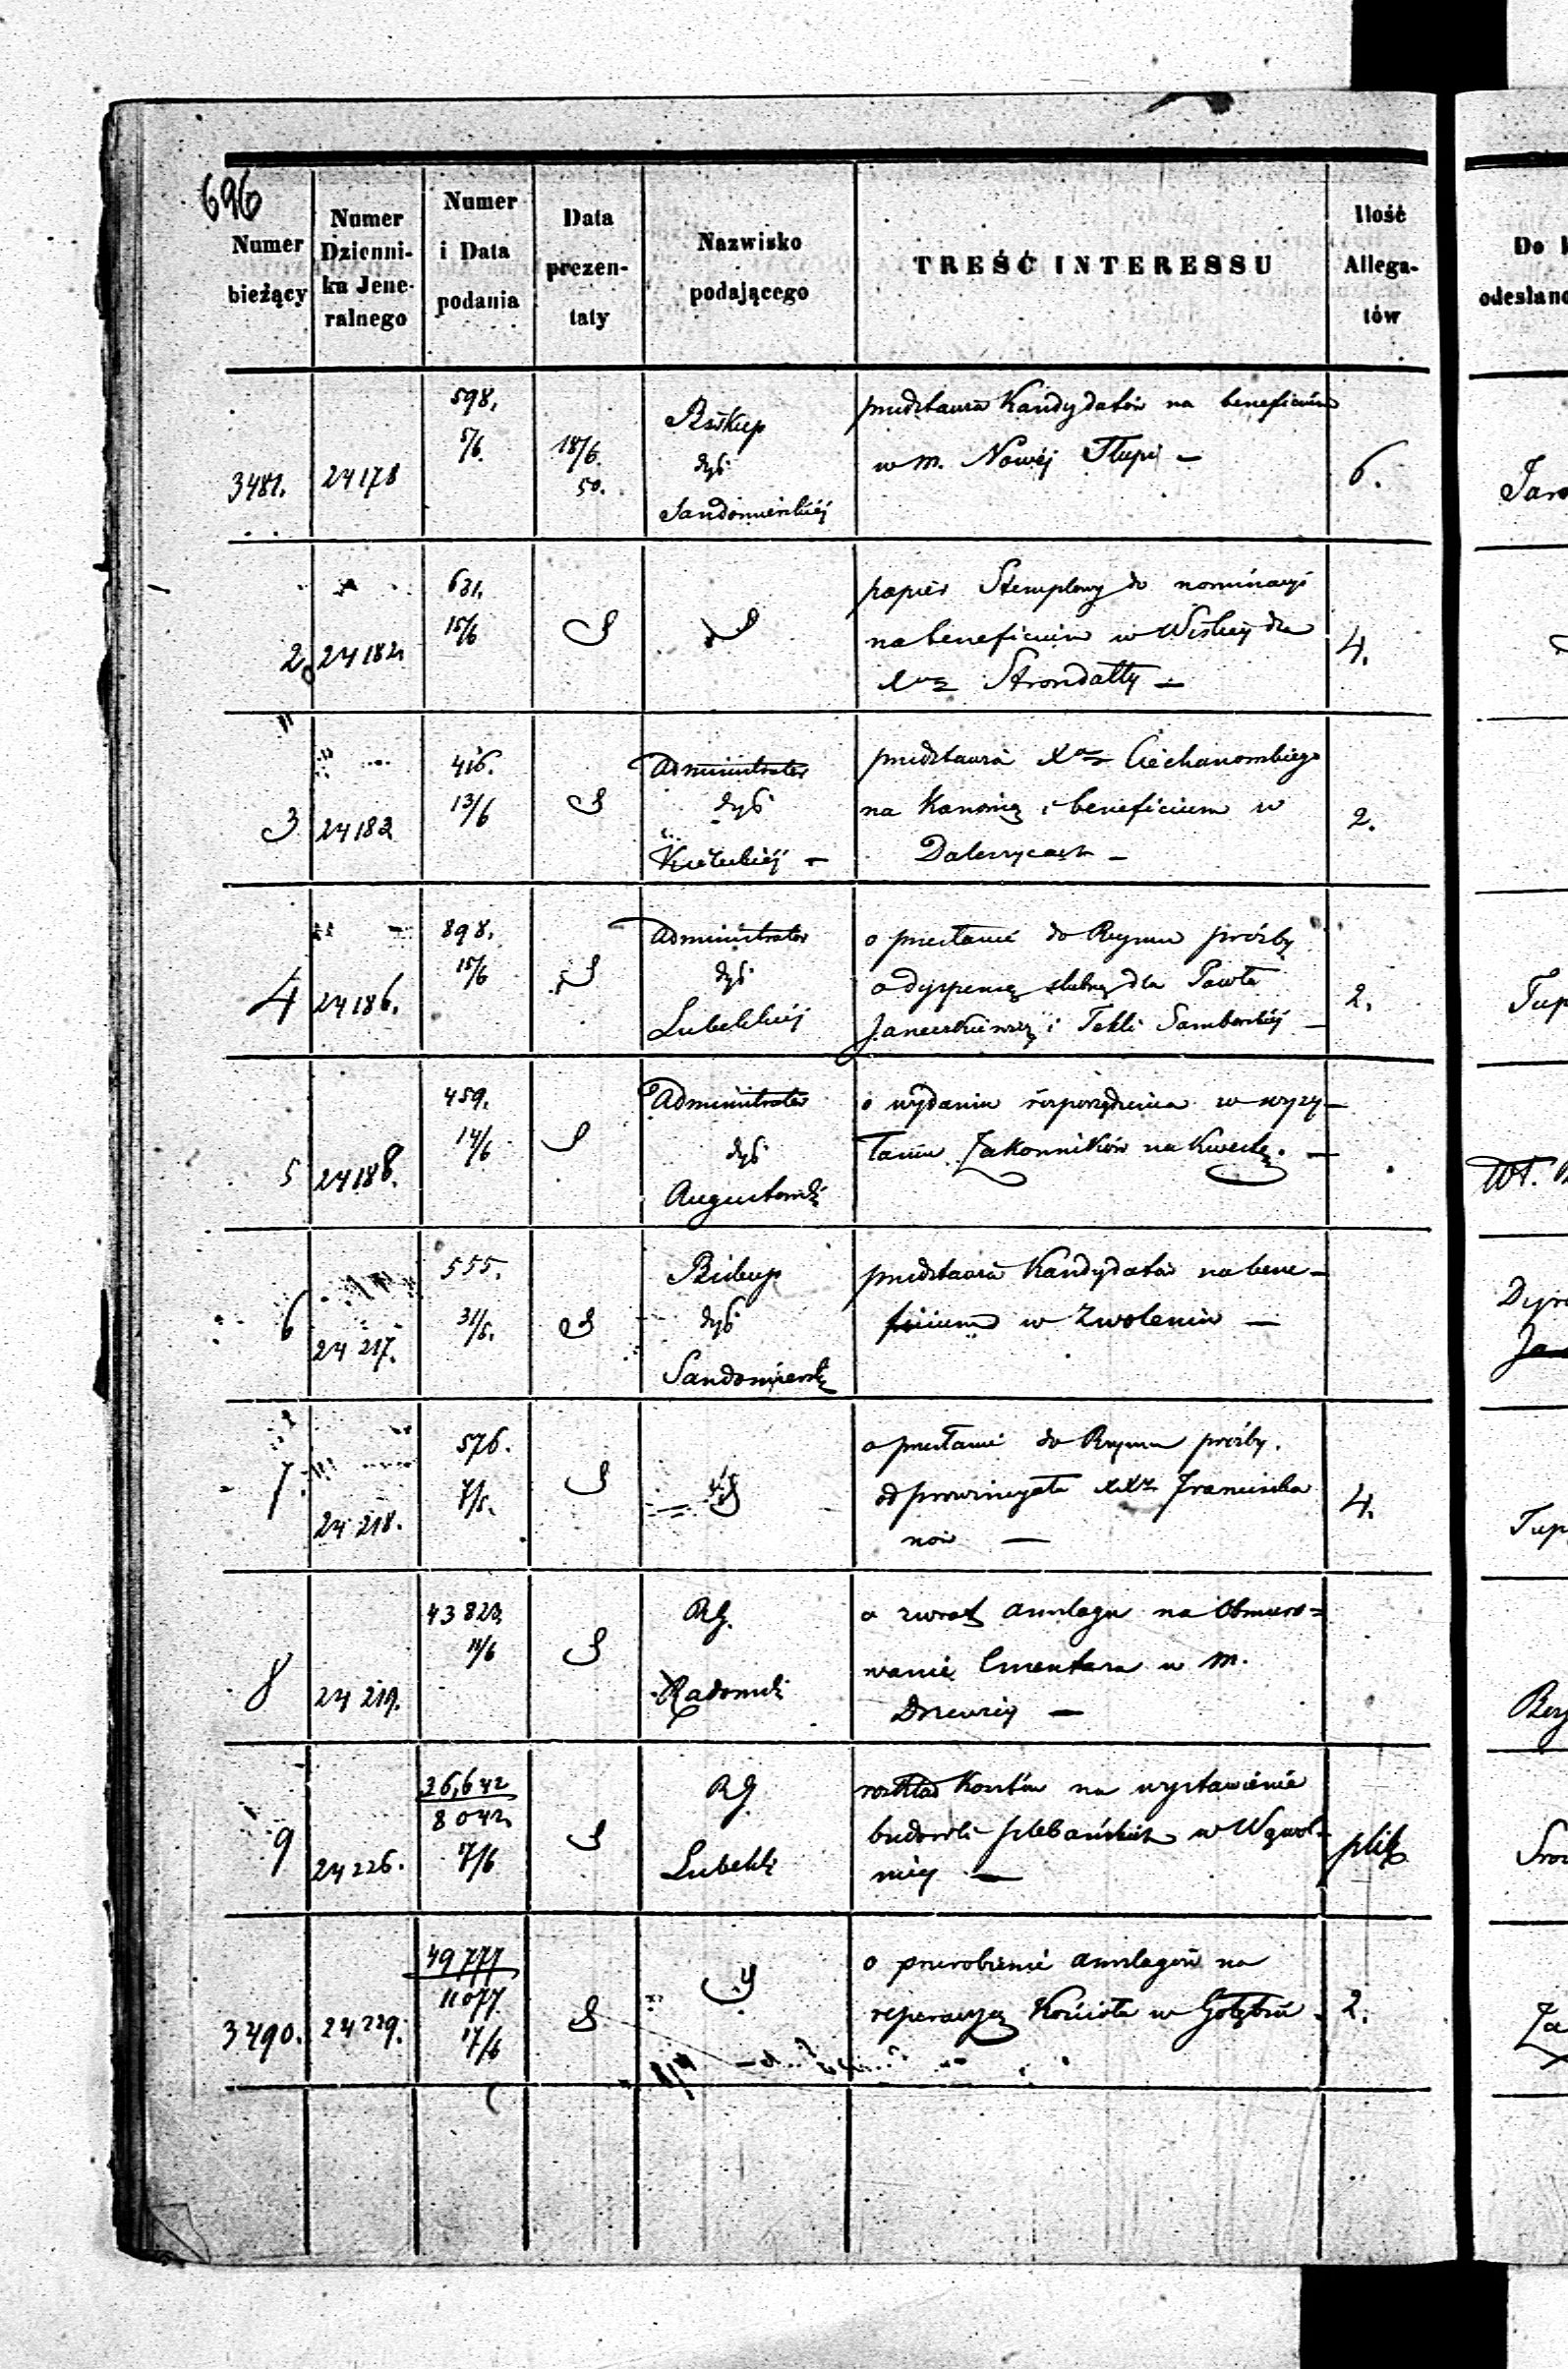 696
Numer bieżący
Numer Dzienni-
ka Jene-
ralnego
Numer
i Data
podania
Data
prezen-
taty
Nazwisko
podającego
TREŚĆ INTERESSU
Ilość
Allega-
tów
Do
odesłano
3481.
24178
598.
5/6
18/6.
50.
Biskup
dys
Sandomierskiéj
przedstawia Kandydatów na beneficium
w m. Nowéj Słupi —
6.
2
24182
631.
15/6
papier Stemplowy do nominacyi
na beneficium w dla
Strondałły —
4.
3
24183
416.
13/6
Administrator
dys
Kieleckiéj —
przedstawia Xa Ciechanowskiego
na Kanonią i beneficium w
Daleszycach —
2.
4
24186.
898.
15/6
Administrator
dys
Lubelskiéj
o przesłanie do Rzymu prośby
o dyspensę ślubną dla Pawła
Janeczkiewicza i Tekli Samborskiéj —
2.
5
24188.
459.
14/6
Administrator
dys
Augustowski
o wydanie rozporządzenia w wysy-
łaniu Zakonników na Kwestę. —
6
24217.
555.
31/5.
Biskup
dys
Sandomierski
przedstawia Kandydatów na bene-
ficium w Zwoleniu —
7.
24218.
576.
7/5.
o przesłanie do Rzymu prośby.
od prowincyała XXz Franciszka
nów —
4.
8
24219.
43823
11/6
RG.
Radomski
o zwrot anszlagu na Obmuro=
wanie Cmentarza w m.
Drzewicy —
9
24226.
36,642
8042
7/6
RG.
Lubelski
rozkład Kosztów na wystawienie
budowli plebańskich w Wąwol-
nicy —
plik
3490.
24229.
49777
11077
17/6
o przerobienie anszlagów na
reperacyą Kościoła w Gołębiu
2.